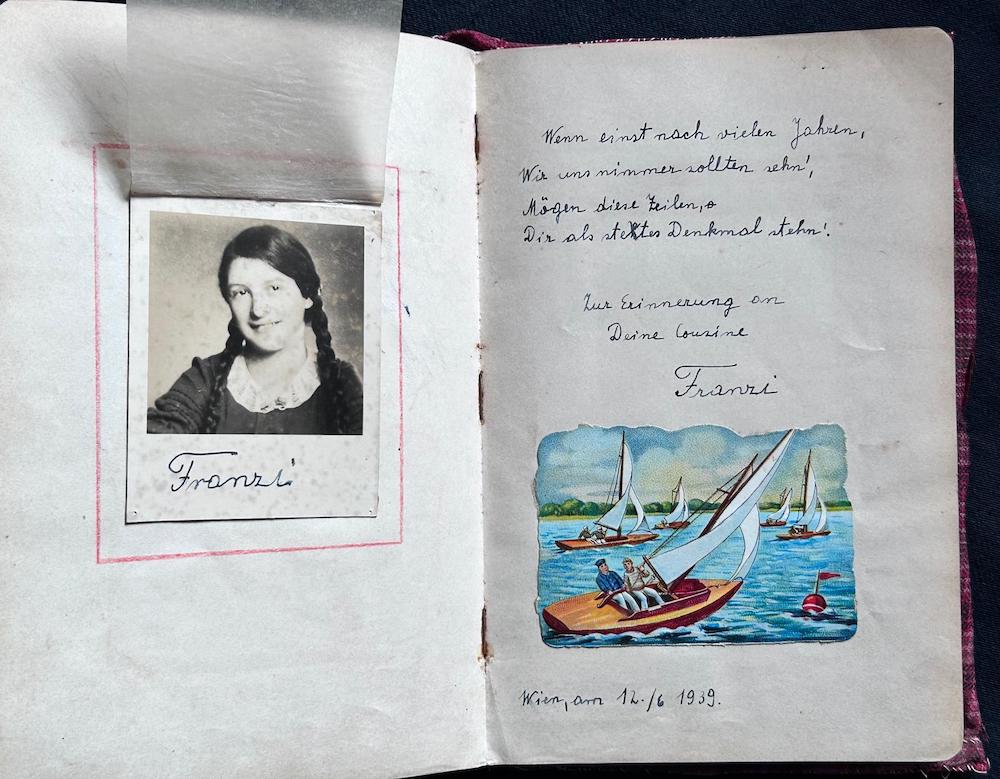 Franzi
Wenn einst nach vielen Jahren,
Wir uns nimmer sollten sehn',
Mögen diese Zeilen,
Dir als stehtes Denkmal stehn'.
Zur Erinnerung an
Deine Cousine
Franzi
Wien, am 12./6 1939.